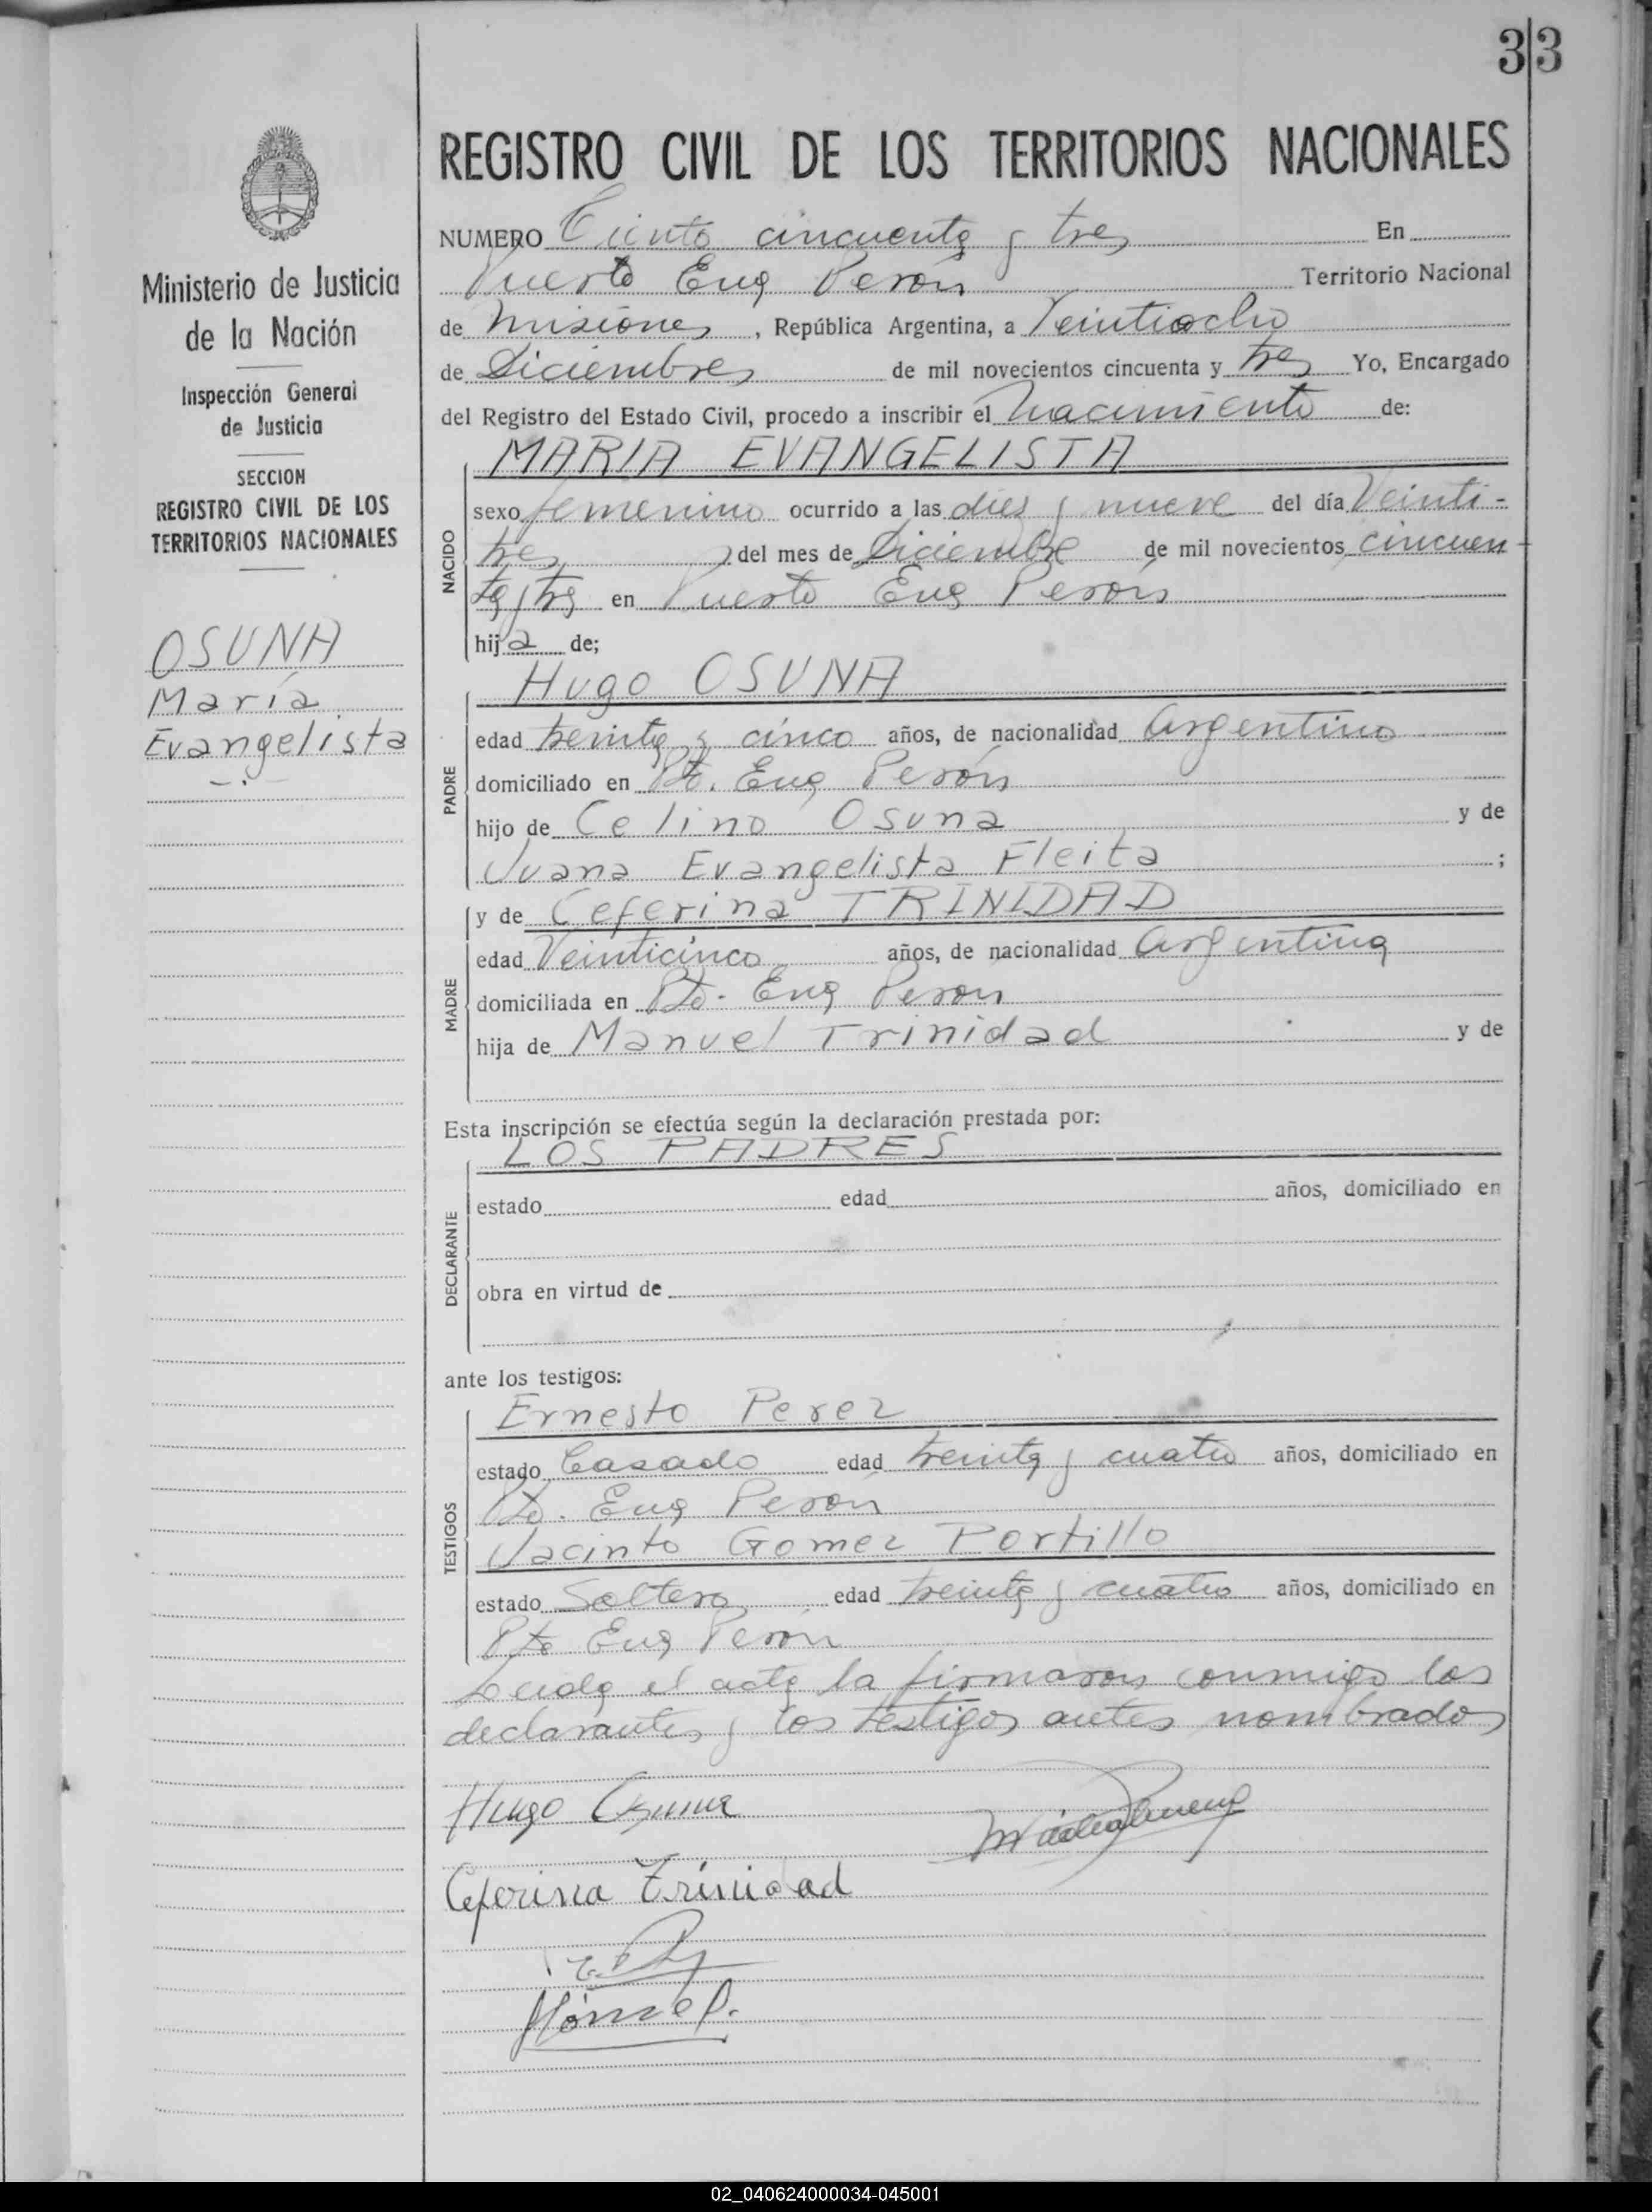 33
REGISTRO CIVIL DE LOS TERRITORIOS NACIONALES
Ministerio de Justicia
de la Nación
Inspección General
de Justicia
SECCION
REGISTRO CIVIL DE LOS
TERRITORIOS NACIONALES
OSUNA
María
Evangelista
NUMERO Ciento cincuenta y tres En
Puerto Eva Perón Territorio Nacional
de Misiones, República Argentina, a Veintiocho
de Diciembre de mil novecientos cincuenta y tres Yo, Encargado
del Registro del Estado Civil, procedo a inscribir el Nacimiento de:
NACIDO
MARIA EVANGELISTA
sexo femenino ocurrido a las diez y nueve del día Veinti-
tres del mes de Diciembre de mil novecientos cincuen
ta y tres en Puerto Eva Perón
hija de;
PADRE
Hugo OSUNA
edad treinta y cinco años, de nacionalidad Argentino
domiciliado en Pto. Eva Perón
hijo de Celino Osuna y de
Juana Evangelista Fleita ;
MADRE
y de Ceferina TRINIDAD
edad Veinticinco años, de nacionalidad Argentina
domiciliada en Pto. Eva Perón
hija de Manuel Trinidad y de
Esta inscripción se efectúa según la declaración prestada por:
DECLARANTE
LOS PADRES
estado edad años, domiciliado en
obra en virtud de
ante los testigos:
TESTIGOS
Ernesto Perez
estado Casado edad treinta y cuatro años, domiciliado en
Pto. Eva Perón
Jacinto Gomez Portillo
estado Soltero edad treinta y cuatro años, domiciliado en
Pto Eva Perón
Leida el acta la firmaron conmigo los
declarantes y los testigos antes nombrados
Hugo Osuna
Ceferina Trinidad
02_040624000034-045001